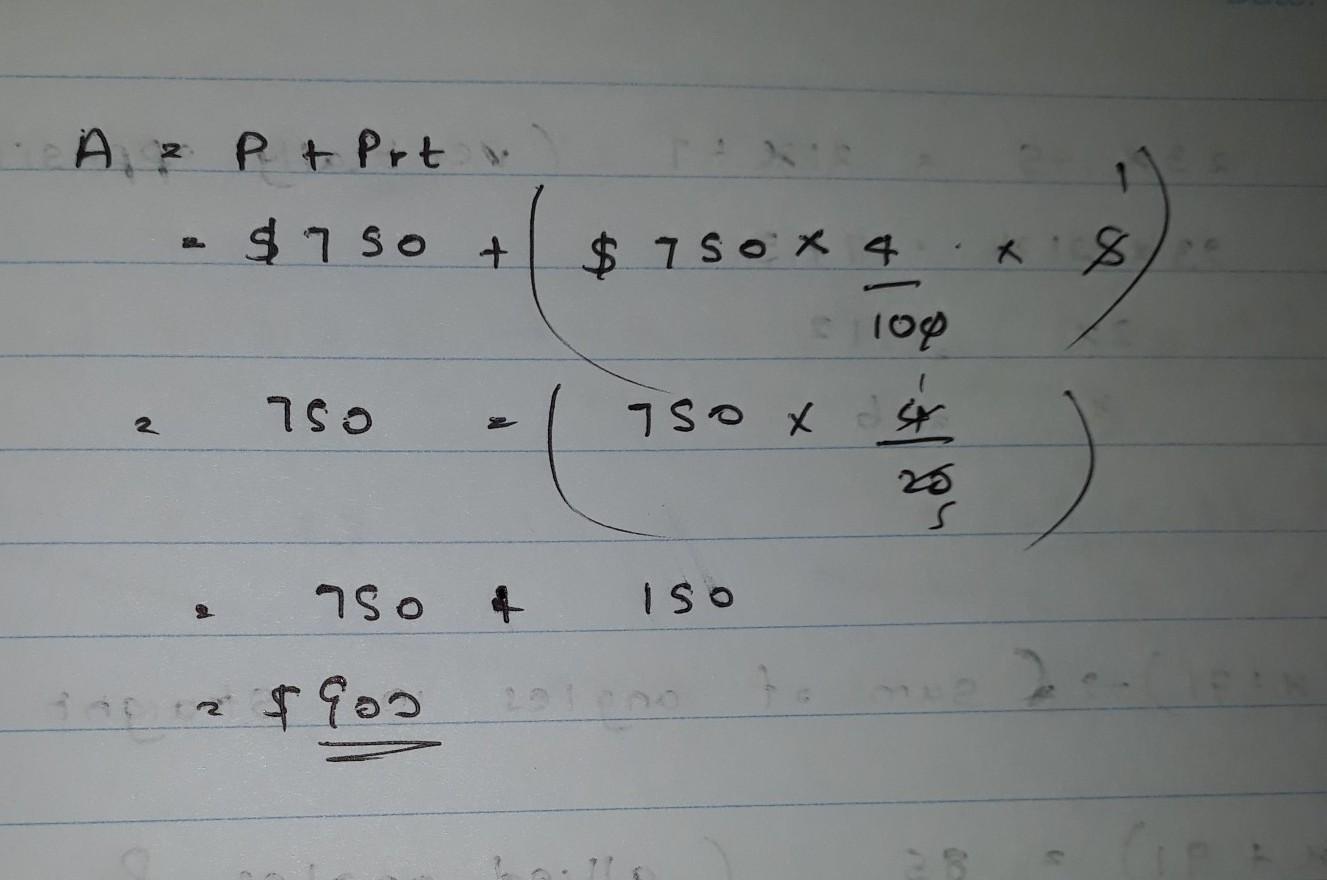 A = P + Prt
= $750 + ( $750 x 4/100 x 5 1 )
= 750 = ( 750 x 4/20 1 5 )
= 750 + 150
= $900